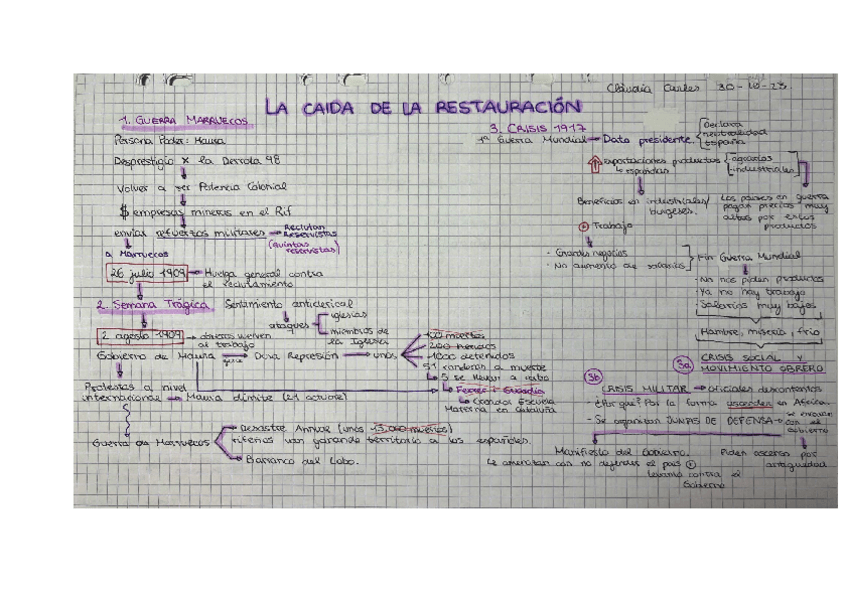 30-10-23
LA CAIDA DE LA RESTAURACIÓN
1. GUERRA MARRUECOS
Persona Poder: Maura
Desprestigio x la Derrota 98
Volver a ser Potencia Colonial
$ empresas mineras en el Rif
enviar refuerzos militares → Reclutan
Reservistas
(quintas
reservistas)
a Marruecos
26 julio 1909 → Huelga general contra
el reclutamiento
2. Semana Trágica
Sentimiento anticlerical
ataques
iglesias
miembros de
la Iglesia
2 agosto 1909 → obreros vuelven
al trabajo
Gobierno de Maura → Dura Represión → unos
200 heridos
1000 detenidos
Protestas a nivel
internacional → Maura dimite (21 octubre)
Ferrer i Guardia
Escuela
Moderna en Cataluña
Guerra de Marruecos
Desastre Annual (unos 13.000 muertos)
rifeños van ganando territorio a los españoles.
Barranco del Lobo.
3. CRISIS 1917
1ª Guerra Mundial → Dato presidente.
Declara
neutralidad
España
exportaciones productos
españoles
agrarios
industriales
Beneficios en industriales/
burgeses.
Los países en guerra
pagan precios muy
altos por estos
productos
+ Trabajo
- Grandes negocios
- No aumento de salarios
Fin Guerra Mundial
- No nos piden productos
- Ya no hay trabajo
- Salarios muy bajos
Hambre, miseria, frío
3a
CRISIS SOCIAL Y
MOVIMIENTO OBRERO
3b
CRISIS MILITAR → oficiales descontentos
- ¿Por qué? Por la forma ascenden en África.
- Se organizan JUNTAS DE DEFENSA →
con el
gobierno
Manifiesto del Gobierno.
Le amenazan con no defender el país
contra el
Gobierno
Piden ascenso por
antiguedad